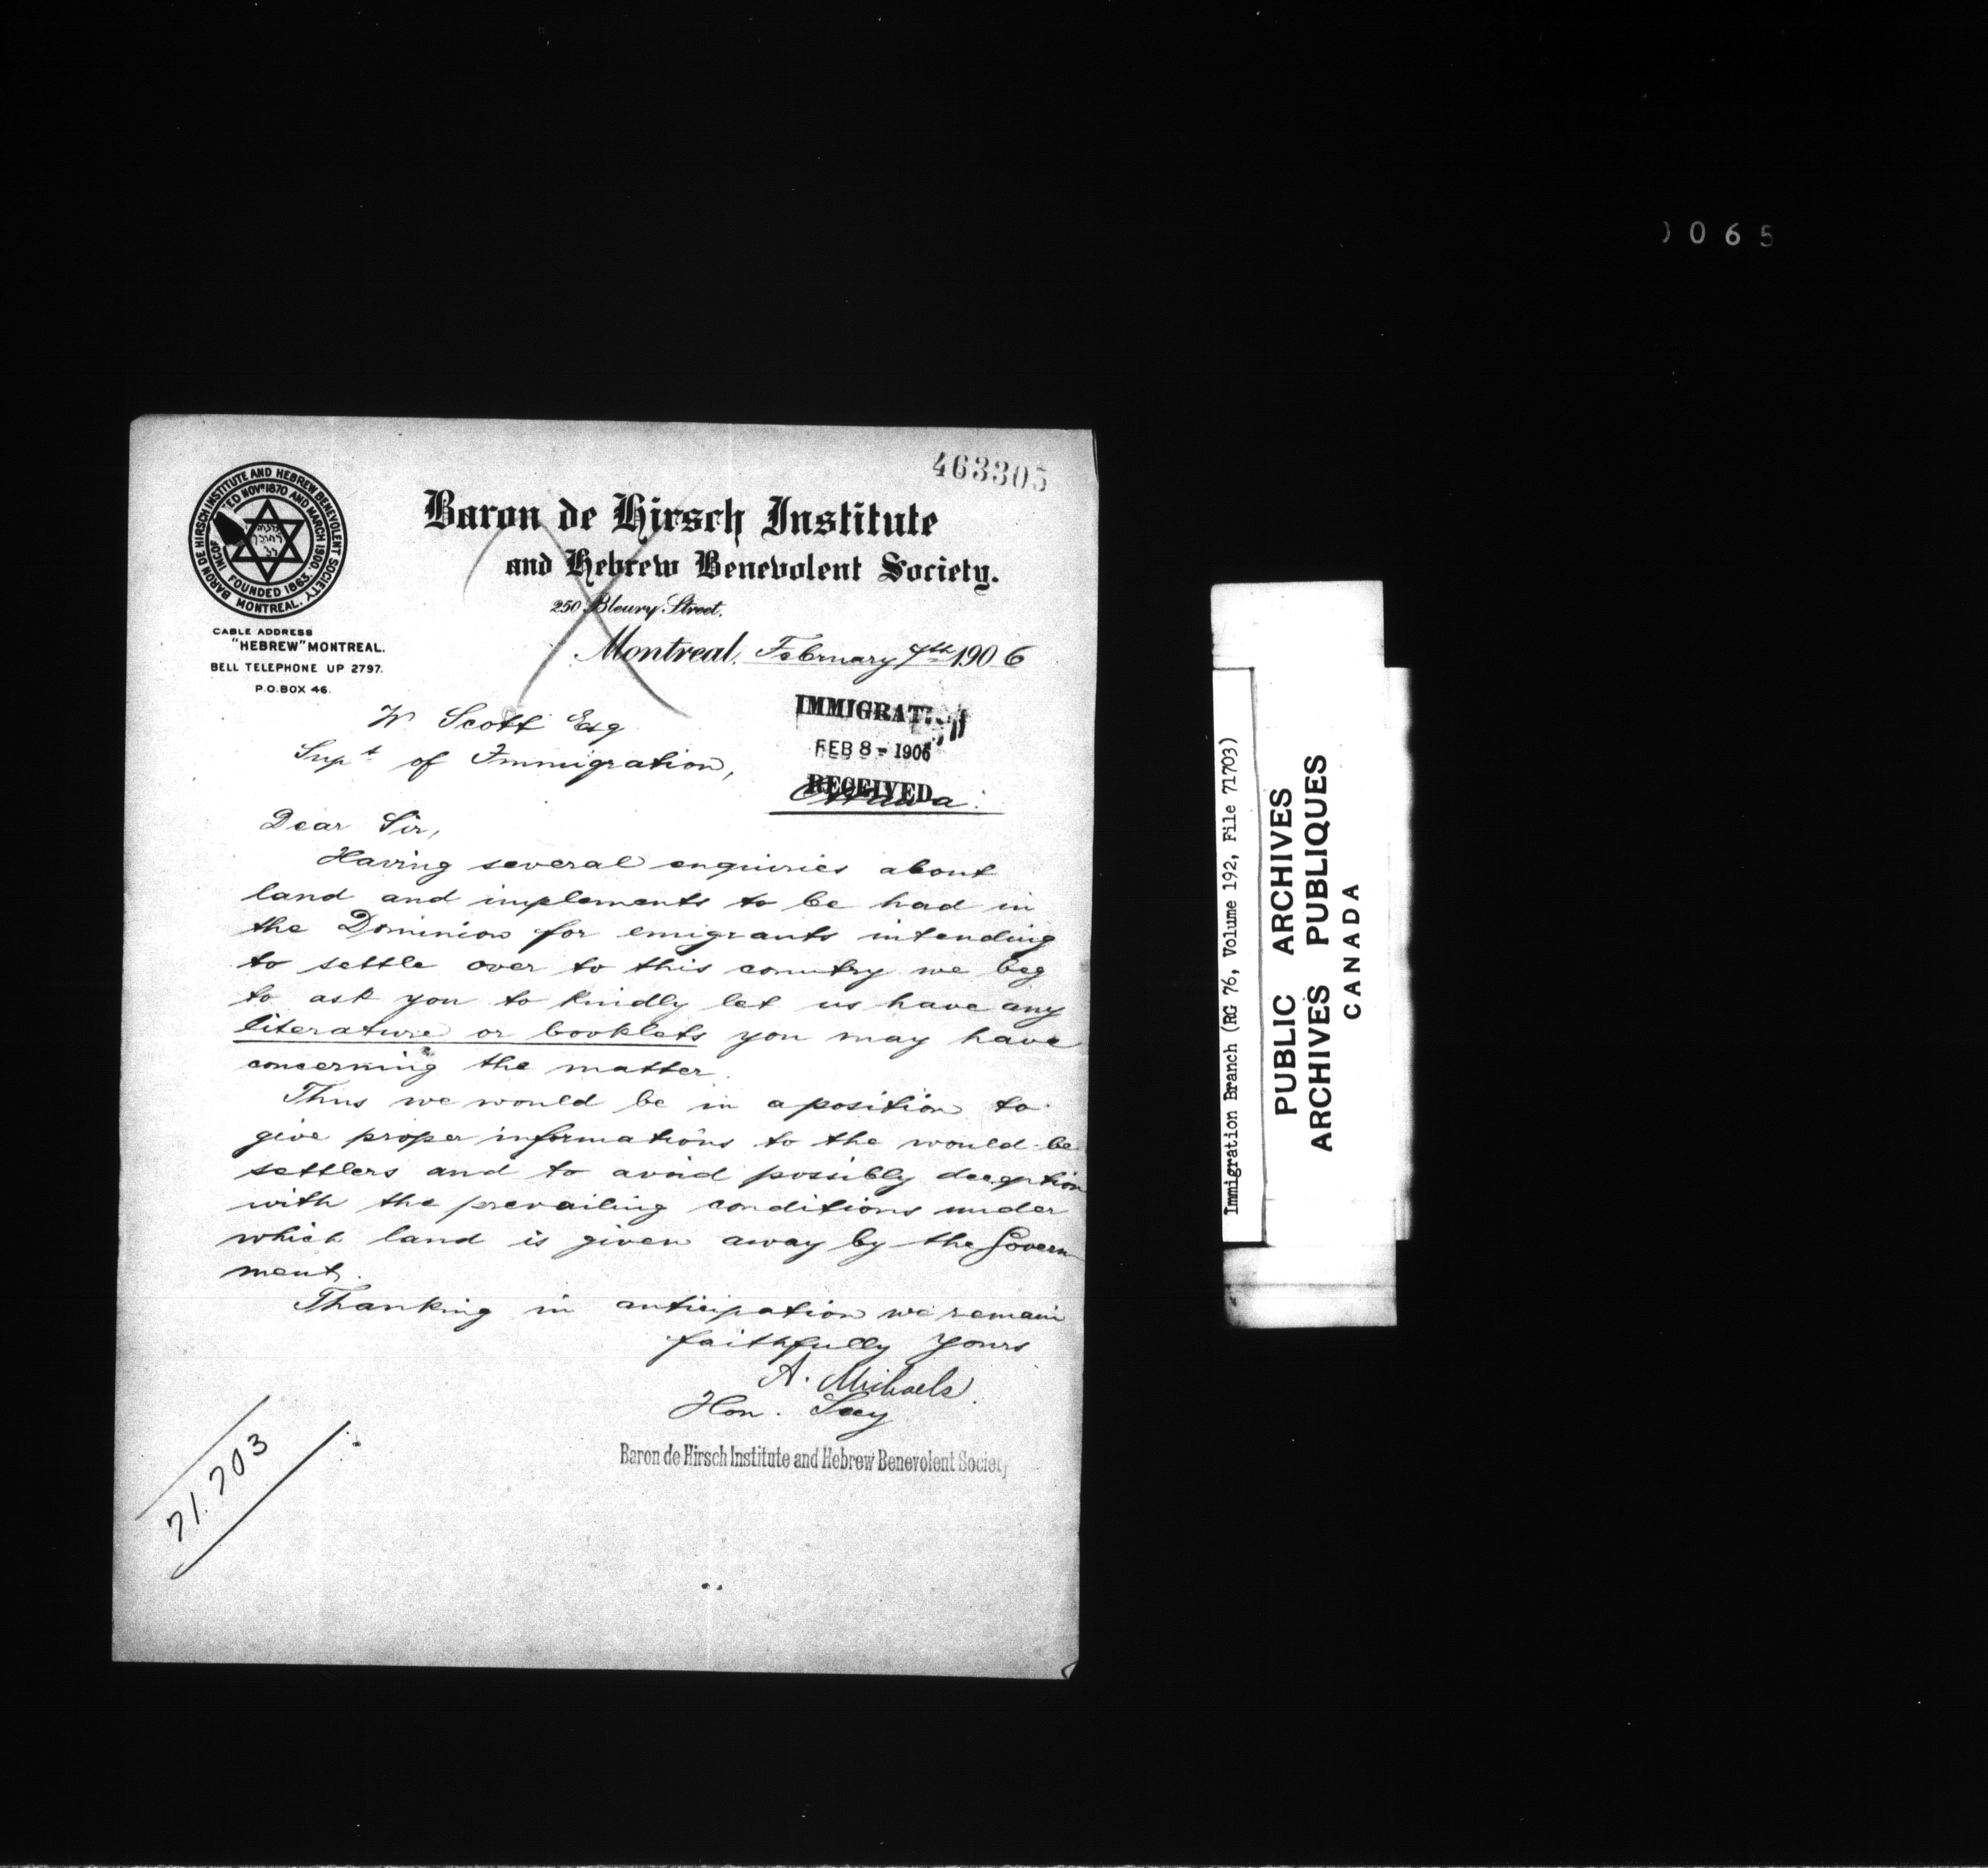 0065
463305
BARON DE HIRSCH INSTITUTE AND HEBREW BENEVOLENT SOCIETY
MONTREAL.
NOVR 1870 AND MARCH 1900.
FOUNDED 1863.
Baron de Hirsch Institute
and Hebrew Benevolent Society.
250 Bleury Street.
CABLE ADDRESS
"HEBREW" MONTREAL.
BELL TELEPHONE UP 2797.
P.O. BOX 46.
Montreal, February 7th 1906
IMMIGRATION
FEB 8 - 1906
RECEIVED
W Scott Esq
Supt of Immigration,
Ottawa.
Dear Sir,
Having several enquiries about
land and implements to be had in
the Dominion for emigrants intending
to settle over to this country we beg
to ask you to kindly let us have any
literature or booklets you may have
concerning the matter.
Thus we would be in a position to
give proper informations to the would-be
settlers and to avoid possibly deception
with the prevailing conditions under
which land is given away by the Govern
ment.
Thanking in anticipation we remain
faithfully yours
A. Michaels.
Hon. Secy
Baron de Hirsch Institute and Hebrew Benevolent Society
71.703
Immigration Branch (RG 76, Volume 192, File 71703)
PUBLIC ARCHIVES
ARCHIVES PUBLIQUES
CANADA